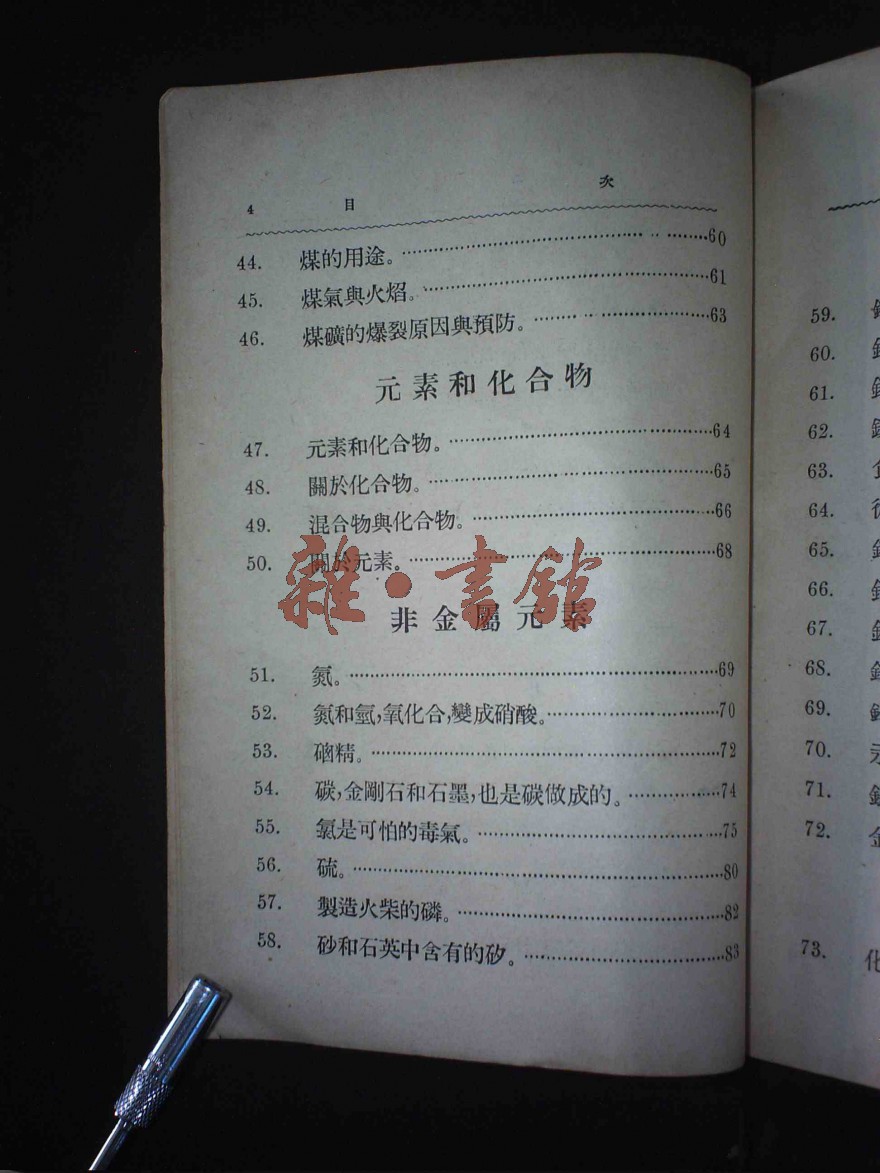 4 目 次
44. 煤的用途。60
45. 煤氣與火熖。61
46. 煤礦的爆裂原因與預防。63
元素和化合物
47. 元素和化合物。64
48. 關於化合物。65
49. 混合物與化合物。66
50. 關於元素。68
雜·書館
非金屬元素
51. 氮。69
52. 氮和氫,氧化合,變成硝酸。70
53. 硇精。72
54. 碳,金剛石和石墨,也是碳做成的。74
55. 氯是可怕的毒氣。75
56. 硫。80
57. 製造火柴的磷。82
58. 砂和石英中含有的矽。83
59.
60.
61.
62.
63.
64.
65.
66.
67.
68.
69.
70.
71.
72.
73. 化